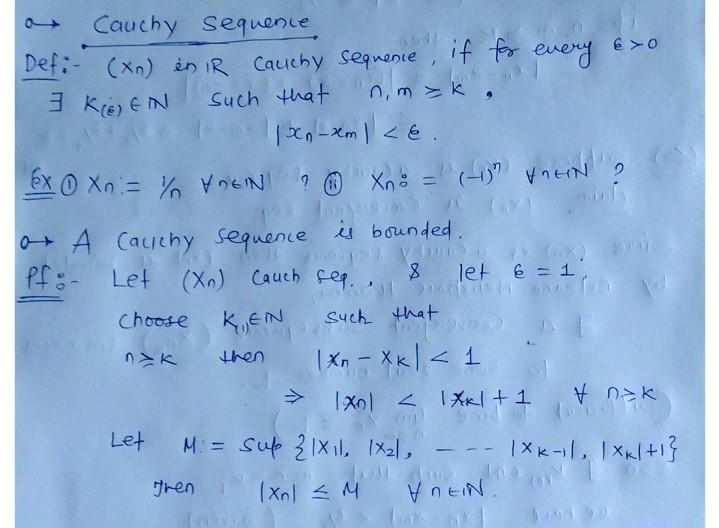 Cauchy Sequence
Def:- (xn) in IR Cauchy sequence, if for every ϵ>0
∃ K(ϵ) ∈ IN such that n, m ≥ K,
|xn-xm| < ϵ.
Ex ① Xn := 1/n ∀n∈IN ? ⑪ Xn := (-1)^n ∀n∈IN ?
A Cauchy sequence is bounded.
Pf:- Let (Xn) Cauch seq., & let ϵ = 1,
Choose K(1)∈IN such that
n≥K then |Xn - XK| < 1
⇒ |Xn| < |XK| + 1 ∀ n≥K
Let M := sup {|X1|, |X2|, ---- |XK-1|, |XK|+1}
Then |Xn| ≤ M ∀n∈IN.